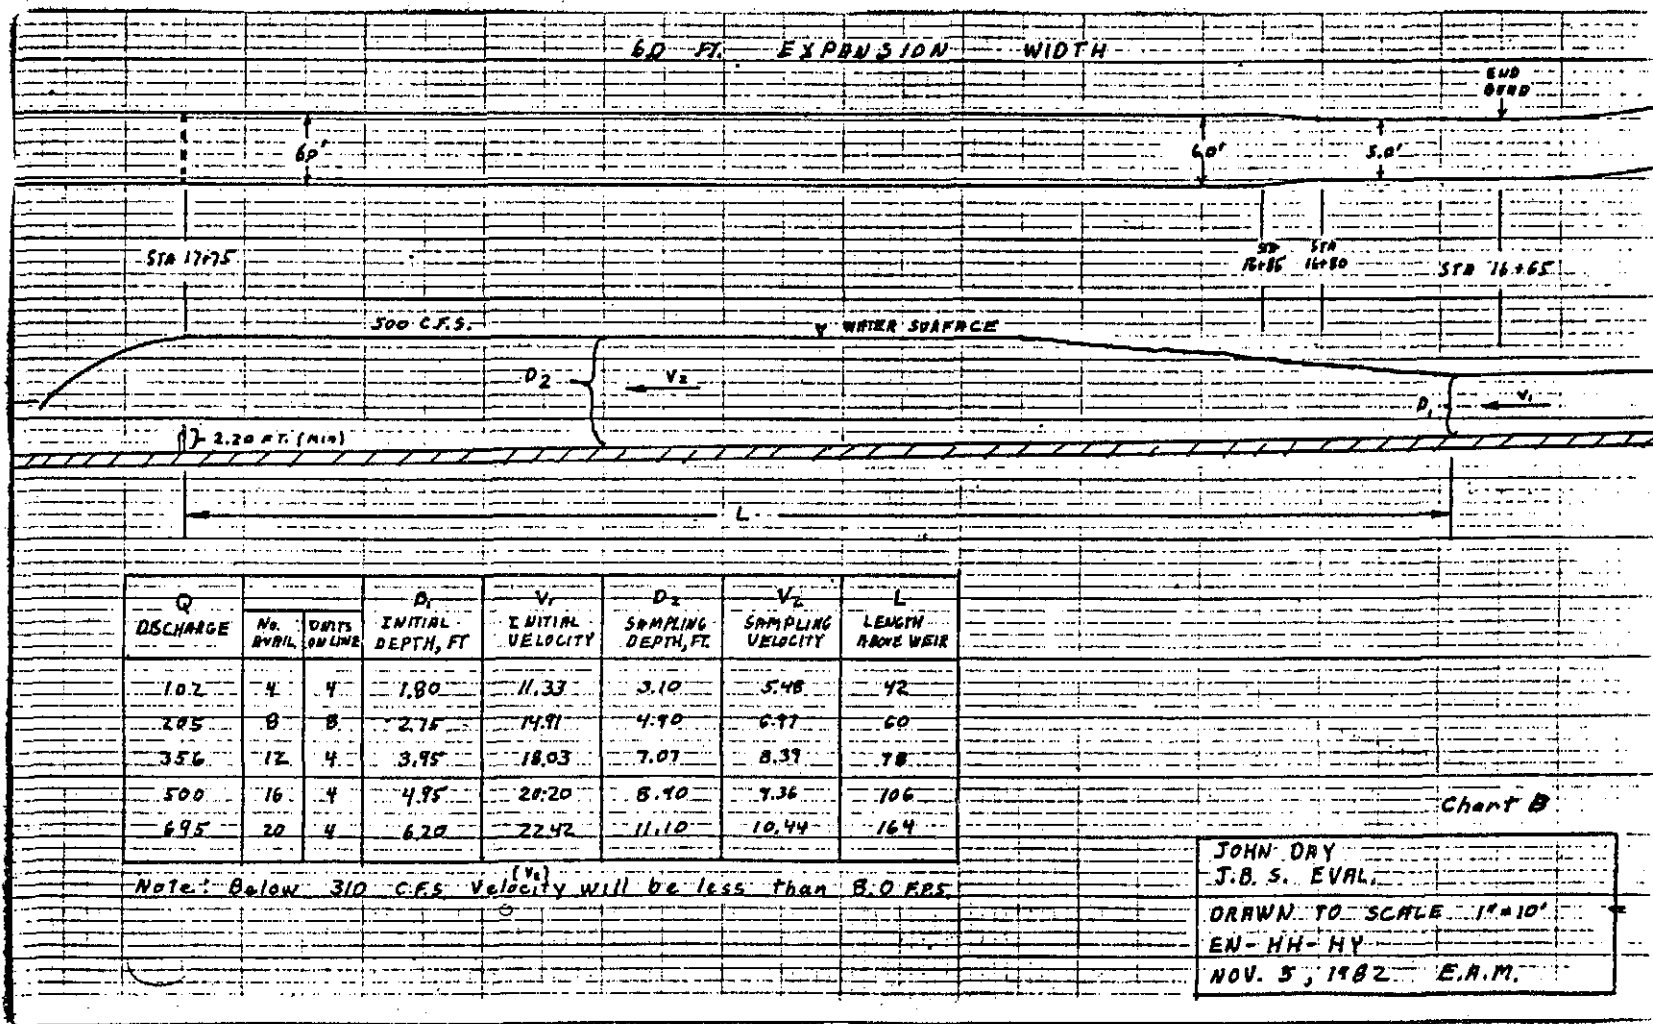 6.0 FT. EXPANSION WIDTH
END
BEND
6.0'
6.0'
5.0'
STA 17+75
STA 16+85
STA 16+80
STA 16+65
500 C.F.S.
WATER SURFACE
D2
V2
D1
V1
2.20 FT. (MIN)
L
Q DISCHARGE | No. AVAIL | UNITS ON LINE | D1 INITIAL DEPTH, FT | V1 INITIAL VELOCITY | D2 SAMPLING DEPTH, FT. | V2 SAMPLING VELOCITY | L LENGTH ABOVE WEIR
102 4 4 1.80 11.33 3.10 5.48 42
205 8 8 2.75 14.91 4.90 6.97 60
356 12 4 3.95 18.03 7.07 8.39 78
500 16 4 4.95 20.20 8.90 9.36 106
695 20 4 6.20 22.42 11.10 10.44 164
Note: Below 310 C.F.S. Velocity (V2) will be less than 8.0 F.P.S.
Chart B
JOHN DAY
J.B.S. EVAL.
DRAWN TO SCALE 1"=10'
EN-HH-HY
NOV. 5, 1982 E.A.M.